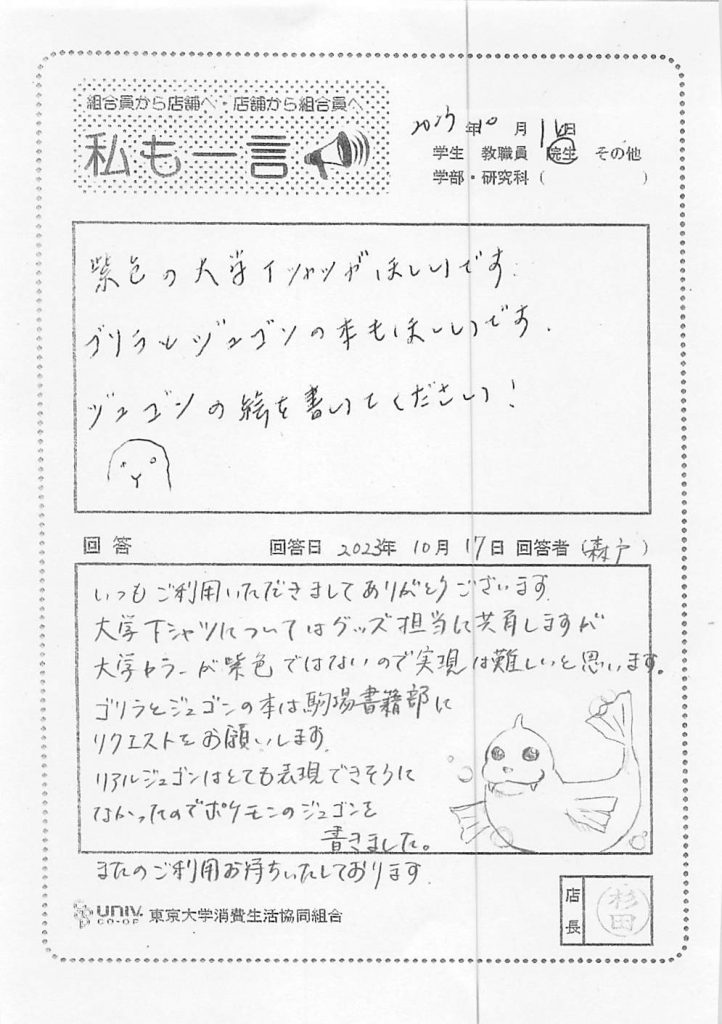 組合員から店舗へ・店舗から組合員へ
私も一言
2023年10月16日
学生 教職員 院生 その他
学部・研究科 ( )
紫色の大学Tシャツがほしいです.
ゴリラとジュゴンの本もほしいです.
ジュゴンの絵を書いてください!
回答 回答日 2023年10月17日 回答者 (森戸)
いつもご利用いただきましてありがとうございます.
大学Tシャツについてはグッズ担当に共有しますが
大学カラーが紫色ではないので実現は難しいと思います。
ゴリラとジュゴンの本は駒場書籍部に
リクエストをお願いします.
リアルジュゴンはとても表現できそうに
なかったのでポケモンのジュゴンを
書きました。
またのご利用お待ちいたしております.
UNIV. CO-OP 東京大学消費生活協同組合
店長 杉田